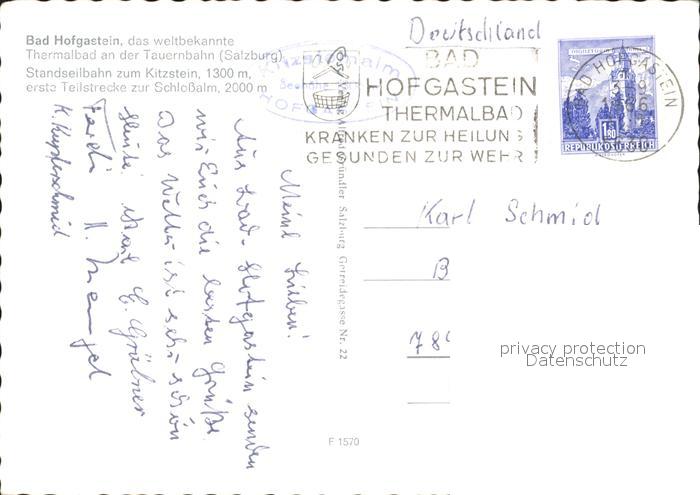 Bad Hofgastein, das weltbekannte
Thermalbad an der Tauernbahn (Salzburg)
Standseilbahn zum Kitzstein, 1300 m,
erste Teilstrecke zur Schloßalm, 2000 m
Meine Lieben!
Aus Bad-Hofgastein senden
wir Euch die besten Grüße.
Das Wetter ist sehr schön
heute.
E. Grübner
K. Kupferschmid
Gründler Salzburg Getreidegasse Nr. 22
F 1570
Deutschland
BAD
HOFGASTEIN
THERMALBAD
KRANKEN ZUR HEILUNG
GESUNDEN ZUR WEHR
BAD HOFGASTEIN
1.80
REPUBLIK ÖSTERREICH
Karl Schmid
B
78
privacy protection
Datenschutz